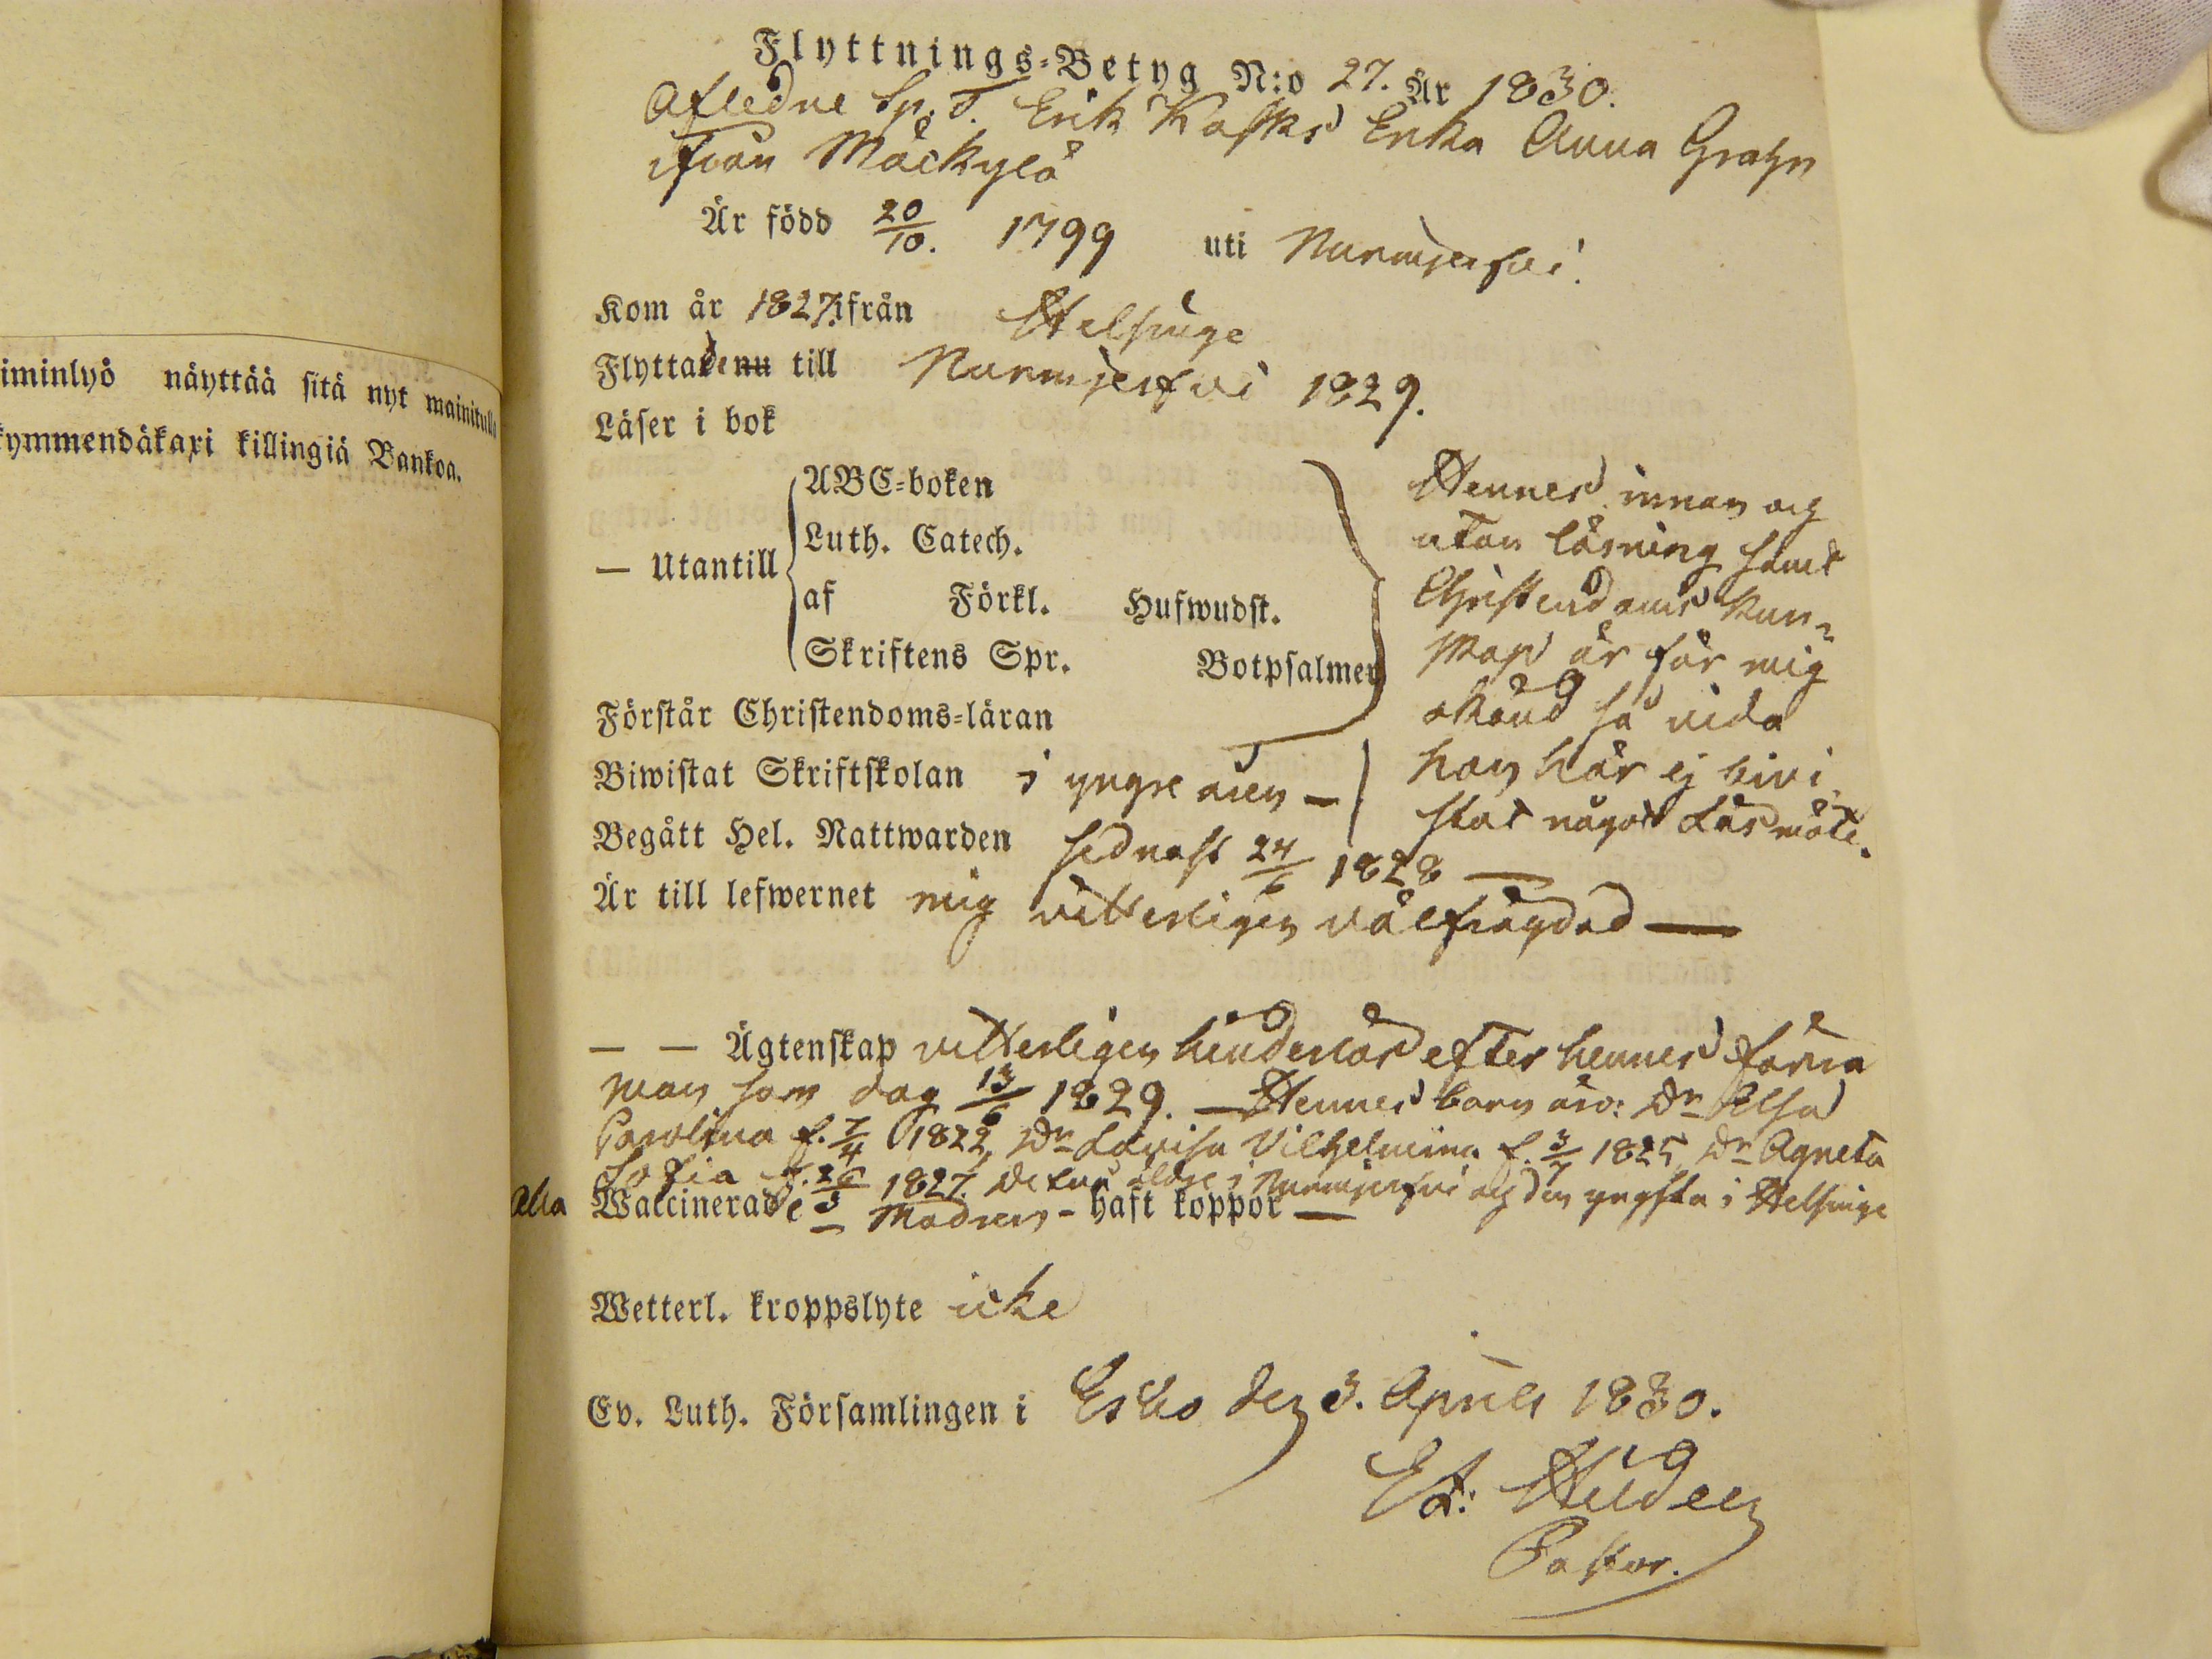 iminlyö näyttää sitä nyt mainitulla
kymmendäkaxi killingiä Bankoa.
Flyttnings-Betyg N:o 27. År 1830.
Afledne Sp. T. Erik Kasks Enka Anna Grahn
ifrån Mäckylä
Är född 20/10. 1799 uti Nurmijerfvi.
Kom år 1827. ifrån Helsinge
Flyttade nu till Nurmijerfvi 1829.
Läser i bok
— Utantill
ABC-boken
Luth. Catech.
af Förkl. Hufwudst.
Skriftens Spr. Botpsalmer
Förstår Christendoms-läran
Hennes innan och
utan läsning samt
Christendoms kun-
skap är för mig
okänd så vida
hon här ej bivi-
stat något Läsmöte.
Biwistat Skriftskolan i yngre åren —
Begått Hel. Nattwarden sednast 24/6 1828 —
Är till lefwernet mig vitterligen välfrägdad —
— — Ägtenskap vitterligen hinderlös efter hennes förra
man som dog 13/6 1829. — Hennes barn äro: Dr Elsa
Carolina f. 7/4 1822, Dr Lovisa Vilhelmina f. 3/7 1825, Dr Agneta
Sofia f. 26/3 1827. De två äldre i Nurmijerfvi och den yngsta i Helsinge
alla Waccinerade — Modren - haft koppor —
Wetterl. kroppslyte icke
Ev. Luth. Församlingen i Esbo den 3. April 1830.
Hildeen
Pastor.